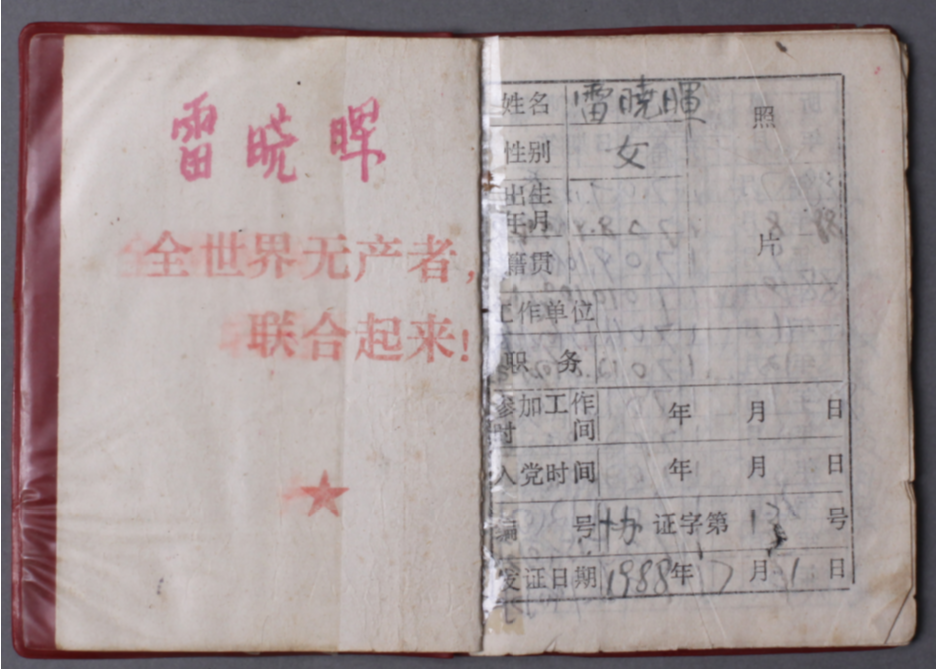 雷晓晖
全世界无产者，
联合起来！
姓名 雷晓晖 照
性别 女
出生
年月
片
籍贯
工作单位
职 务
参加工作
时 间 年 月 日
入党时间 年 月 日
编 号 协 证字第 号
发证日期 1988年 7月 1日